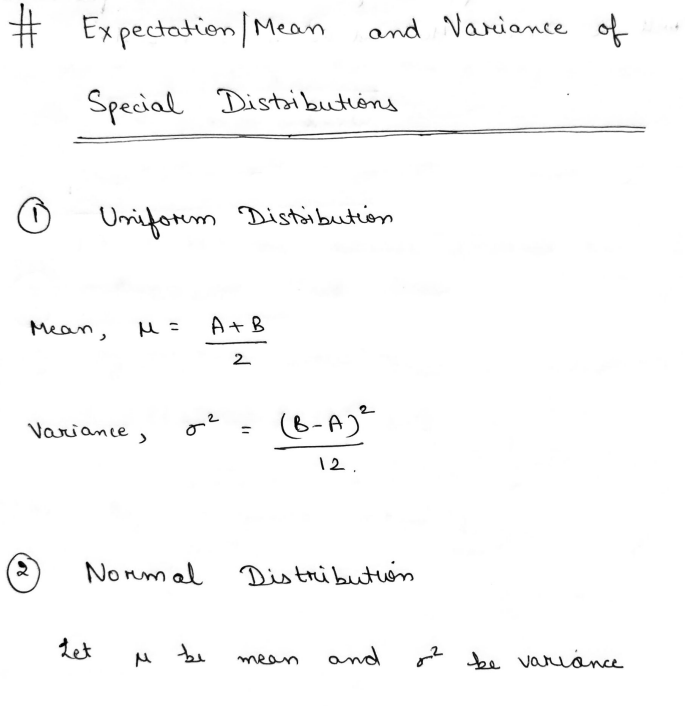 # Expectation/Mean and Variance of
Special Distributions
① Uniform Distribution
Mean, μ = A+B / 2
Variance, σ² = (B-A)² / 12.
② Normal Distribution
Let μ be mean and σ² be variance